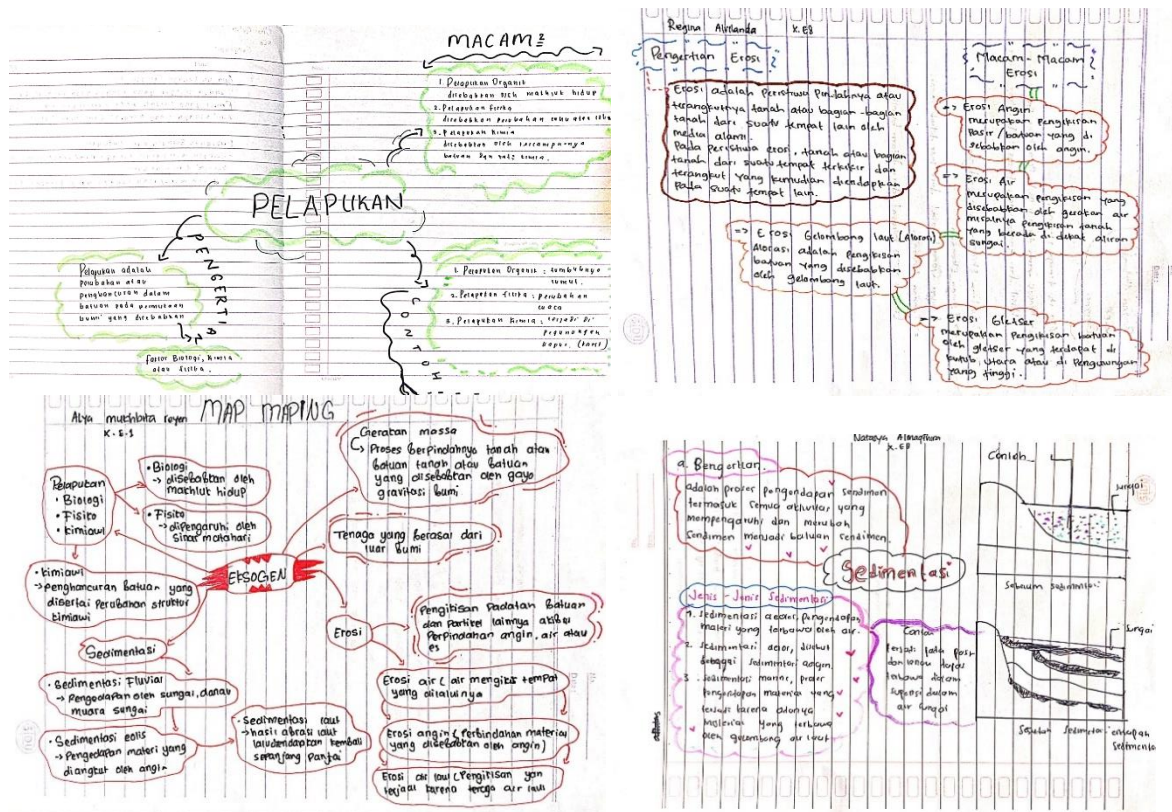 MACAM²
1. Pelapukan Organik
disebabkan oleh makhluk hidup
2. Pelapukan fisika
disebabkan perubahan suhu atau
3. Pelapukan Kimia
disebabkan oleh tercampurnya
batuan dan zat² kimia.
PELAPUKAN
PENGERTIAN
Pelapukan adalah
perubahan atau
penghancuran dalam
batuan pada permukaan
bumi yang disebabkan
faktor Biologi, kimia
atau fisika.
CONTOH
1. Pelapukan Organik : tumbuhnya
lumut.
2. Pelapukan fisika : perubahan
cuaca
3. Pelapukan Kimia : terjadi di
pegunungan
kapur. (karst)
Regina Alvianda X.E8
Pengertian Erosi
Erosi adalah peristiwa pindahnya atau
terangkutnya tanah atau bagian-bagian
tanah dari suatu tempat lain oleh
media alami.
Pada peristiwa erosi, tanah atau bagian
tanah dari suatu tempat terkikir dan
terangkut yang kemudian diendapkan
pada suatu tempat lain.
Macam-Macam
Erosi
=> Erosi Angin
merupakan pengikisan
pasir/batuan yang di
sebabkan oleh angin.
=> Erosi Air
merupakan pengikisan yang
disebabkan oleh gerakan air
misalnya pengikisan tanah
yang berada di dekat aliran
sungai.
=> Erosi Gelombang laut (Abrasi)
adalah pengikisan
batuan yang disebabkan
oleh gelombang laut.
=> Erosi Gletser
merupakan pengikisan batuan
oleh gletser yang terdapat di
kutub utara atau di pengunungan
yang tinggi.
MAP MAPING
Alya mukhbita reyen
X.E.1
EKSOGEN
Pelapukan
• Biologi
• Fisika
• kimiawi
• Biologi
→ disebabkan oleh
makhluk hidup
• Fisika
→ dipengaruhi oleh
sinar matahari
• kimiawi
→ penghancuran batuan yang
disertai perubahan struktur
kimiawi
Gerakan massa
Proses berpindahnya tanah atau
batuan tanah atau batuan
yang disebabkan oleh gaya
gravitasi bumi
Tenaga yang berasal dari
luar bumi
Erosi
Pengikisan padatan batuan
dan partikel lainnya akibat
perpindahan angin, air atau
es
Erosi air (air mengikis tempat
yang dilaluinya
Erosi angin (perbindahan material
yang disebabkan oleh angin)
Erosi air laut (pengitisan yan
terjadi karena tenaga air laut
Sedimentasi
• Sedimentasi Fluvial
→ Pengedapan oleh sungai, danau
muara sungai
• Sedimentasi eolis
→ Pengedapan materi yang
diangkut oleh angin
• Sedimentasi laut
→ hasil abrasi laut
laludendapkan kembali
sepanjang pantai
Natasya
X.E8
a. Pengertian.
adalah proses pengendapan sendimen
termasuk semua aktivitas yang
mempengaruhi dan merubah
sendimen menjadi batuan sendimen.
Sedimentasi
Jenis-Jenis Sedimentasi
1. Sedimentasi pengendapan
materi yang terbawa oleh air.
2. sedimentasi disebut
sebagai sedimentasi angin.
3. sedimentasi marine, proses
pengendapan material yang
terjadi karena adanya
material yang terbawa
oleh gelombang air laut
Contoh
pada pasir
dan lanau dapat
terbawa dalam
supensi dalam
air sungai
Contoh
sungai
Sebelum sedimentasi
sungai
endapan
Sesudah sedimentasi
sedimentasi